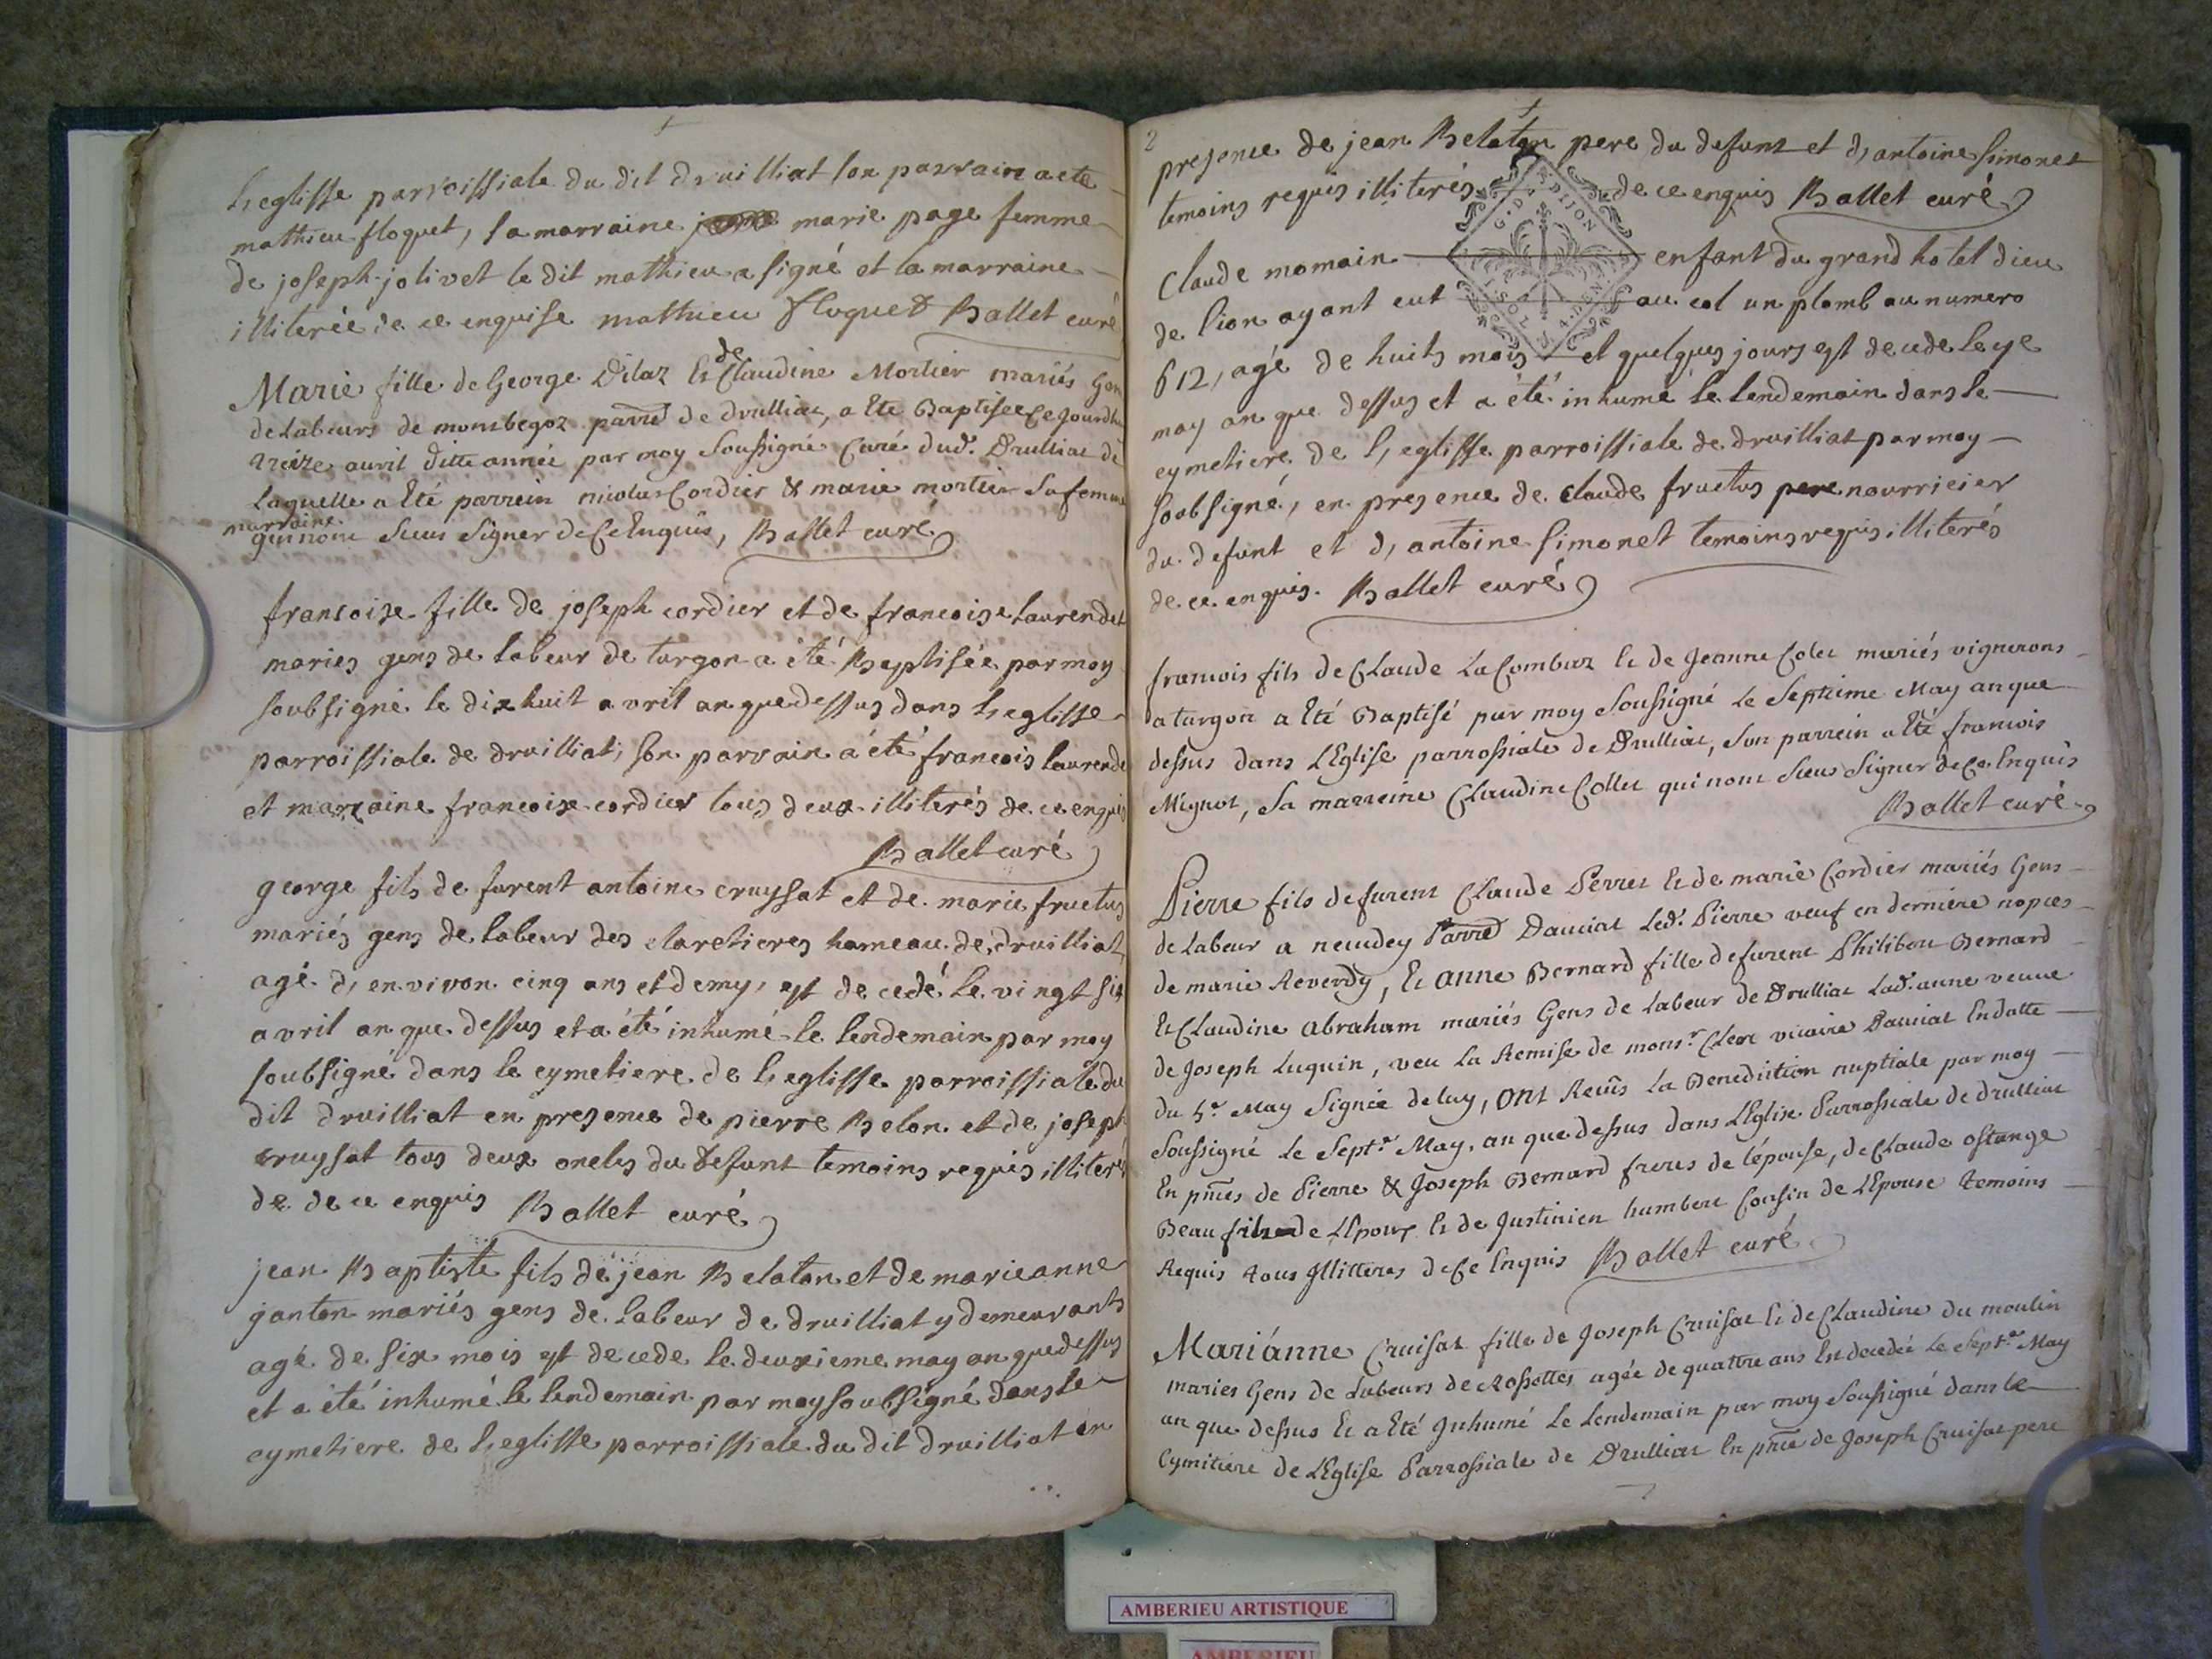 L,eglisse parroissiale du dit druilliat son parrain a ete
mathieu floquet, sa marraine marie page femme
de joseph jolivet le dit mathieu a signé et la marraine
illiterée de ce enquise mathieu floquet Ballet curé
Marie fille de George Dilaz Et de Claudine Mortier mariés Gens
de Labeurs de monbegoz parre de drulliat, a Ete Baptisée Ce Jourdhuy
treize avril ditte année par moy Soussigné Curé dud. Drulliat de
Laquelle a Eté parrein nicolas Cordier & marie mortier Sa femme
marraine
qui nont Sceus Signer de Ce Enquis, Ballet curé
fransoise fille de joseph cordier et de francoise laurendet
mariés gens de labeur de turgon a été Baptisée par moy
soubsigné le dixhuit avril an que dessus dans L,eglisse
parroissiale de druilliat, son parrain a été francois laurende
et marraine francoise cordier tous deux illiterés de ce enquis
Ballet curé
george fils de furent antoine cruysat et de marie fructus
mariés gens de labeur des claretieres hameau de druilliat
agé d,environ cinq ans et demy, est decedé le vingt six
avril an que dessus et a été inhumé le lendemain par moy
soubsigné dans le cymetiere de L,eglisse parroissiale du
dit druilliat en presence de pierre Belon et de joseph
cruysat tous deux oncles du defunt temoins requis illiterés
de de ce enquis Ballet curé
jean Baptiste fils de jean Belaton et de marieanne
janton mariés gens de labeur de druilliat y demeurants
agé de six mois est decede le deuxieme may an que dessus
et a été inhumé le lendemain par moy soubsigné dans le
cymetiere de L,eglisse parroissiale du dit druilliat en
2
presence de jean Belaton pere du defunt et d,antoine simonet
temoins requis illiterés de ce enquis Ballet curé
G. D. DIJON
claude momain enfant du grand hotel dieu
de lion ayant eut au col un plomb au numero
1. SOL 4. DEN.
612, agé de huits mois et quelques jours est decede le 4e
may an que dessus et a été inhumé le lendemain dans le
cymetiere de L,eglisse parroissiale de druilliat par moy
soubsigné, en presence de claude fructus pere nourricier
du defunt et d,antoine simonet temoins requis illiterés
de ce enquis. Ballet curé
francois fils de Claude LaCombaz Et de Jeanne Colet mariés vignerons
a turgon a Eté Baptisé par moy Soussigné Le Septieme May an que
dessus dans LEglise parrossiale de Drulliat, Son parrein a Eté francois
Mignot, Sa marreine Claudine Collet qui nont Sceus Signer de Ce Enquis
Ballet curé
Pierre fils de furent Claude Perret Et de marie Cordier mariés Gens
de Labeur a neudey Parre Dauciat Led. Pierre veuf en derniere nopces
de marie Reverdy, Et anne Bernard fille de furent Philibert Bernard
Et Claudine abraham mariés Gens de Labeur de Drulliat Lad. anne veuve
de Joseph Luquin, veu La Remise de monsr Clerc vicaire Dauciat En datte
du 5e May Signée de luy, ont Receus La Benediction nuptiale par moy
Soussigné Le Septe May, an que dessus dans LEglise Parrossiale de drulliat
En pnces de Pierre & Joseph Bernard freres de lépouse, de Claude ostange
Beau fils de LEpoux Et de Justinien humbert Cousin de LEpouse temoins
Requis tous Illitteres de Ce Enquis Ballet curé
Mariánne Cruisat fille de Joseph Cruisat Et de Claudine du moulin
maries Gens de Labeurs de Rossettes agée de quattre ans Est decedée Le Septe May
an que dessus Et a Eté Inhumé Le Lendemain par moy Soussigné dans le
Cymitiere de LEglise Parrossiale de Drulliat En pnce de Joseph Cruisat pere
AMBERIEU ARTISTIQUE
AMBERIEU